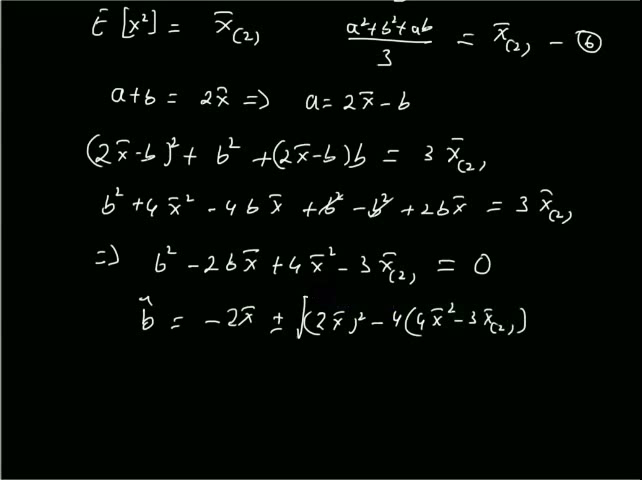 E [x²] = x̄₍₂₎   (a²+b²+ab)/3 = x̄₍₂₎ – ⑥
a+b = 2x̄ => a = 2x̄ – b
(2x̄-b)² + b² + (2x̄-b)b = 3 x̄₍₂₎
b² + 4x̄² - 4bx̄ + b² - b² + 2bx̄ = 3 x̄₍₂₎
=> b² - 2bx̄ + 4x̄² - 3x̄₍₂₎ = 0
b̂ = -2x̄ ± √(2x̄)² - 4(4x̄² - 3x̄₍₂₎)